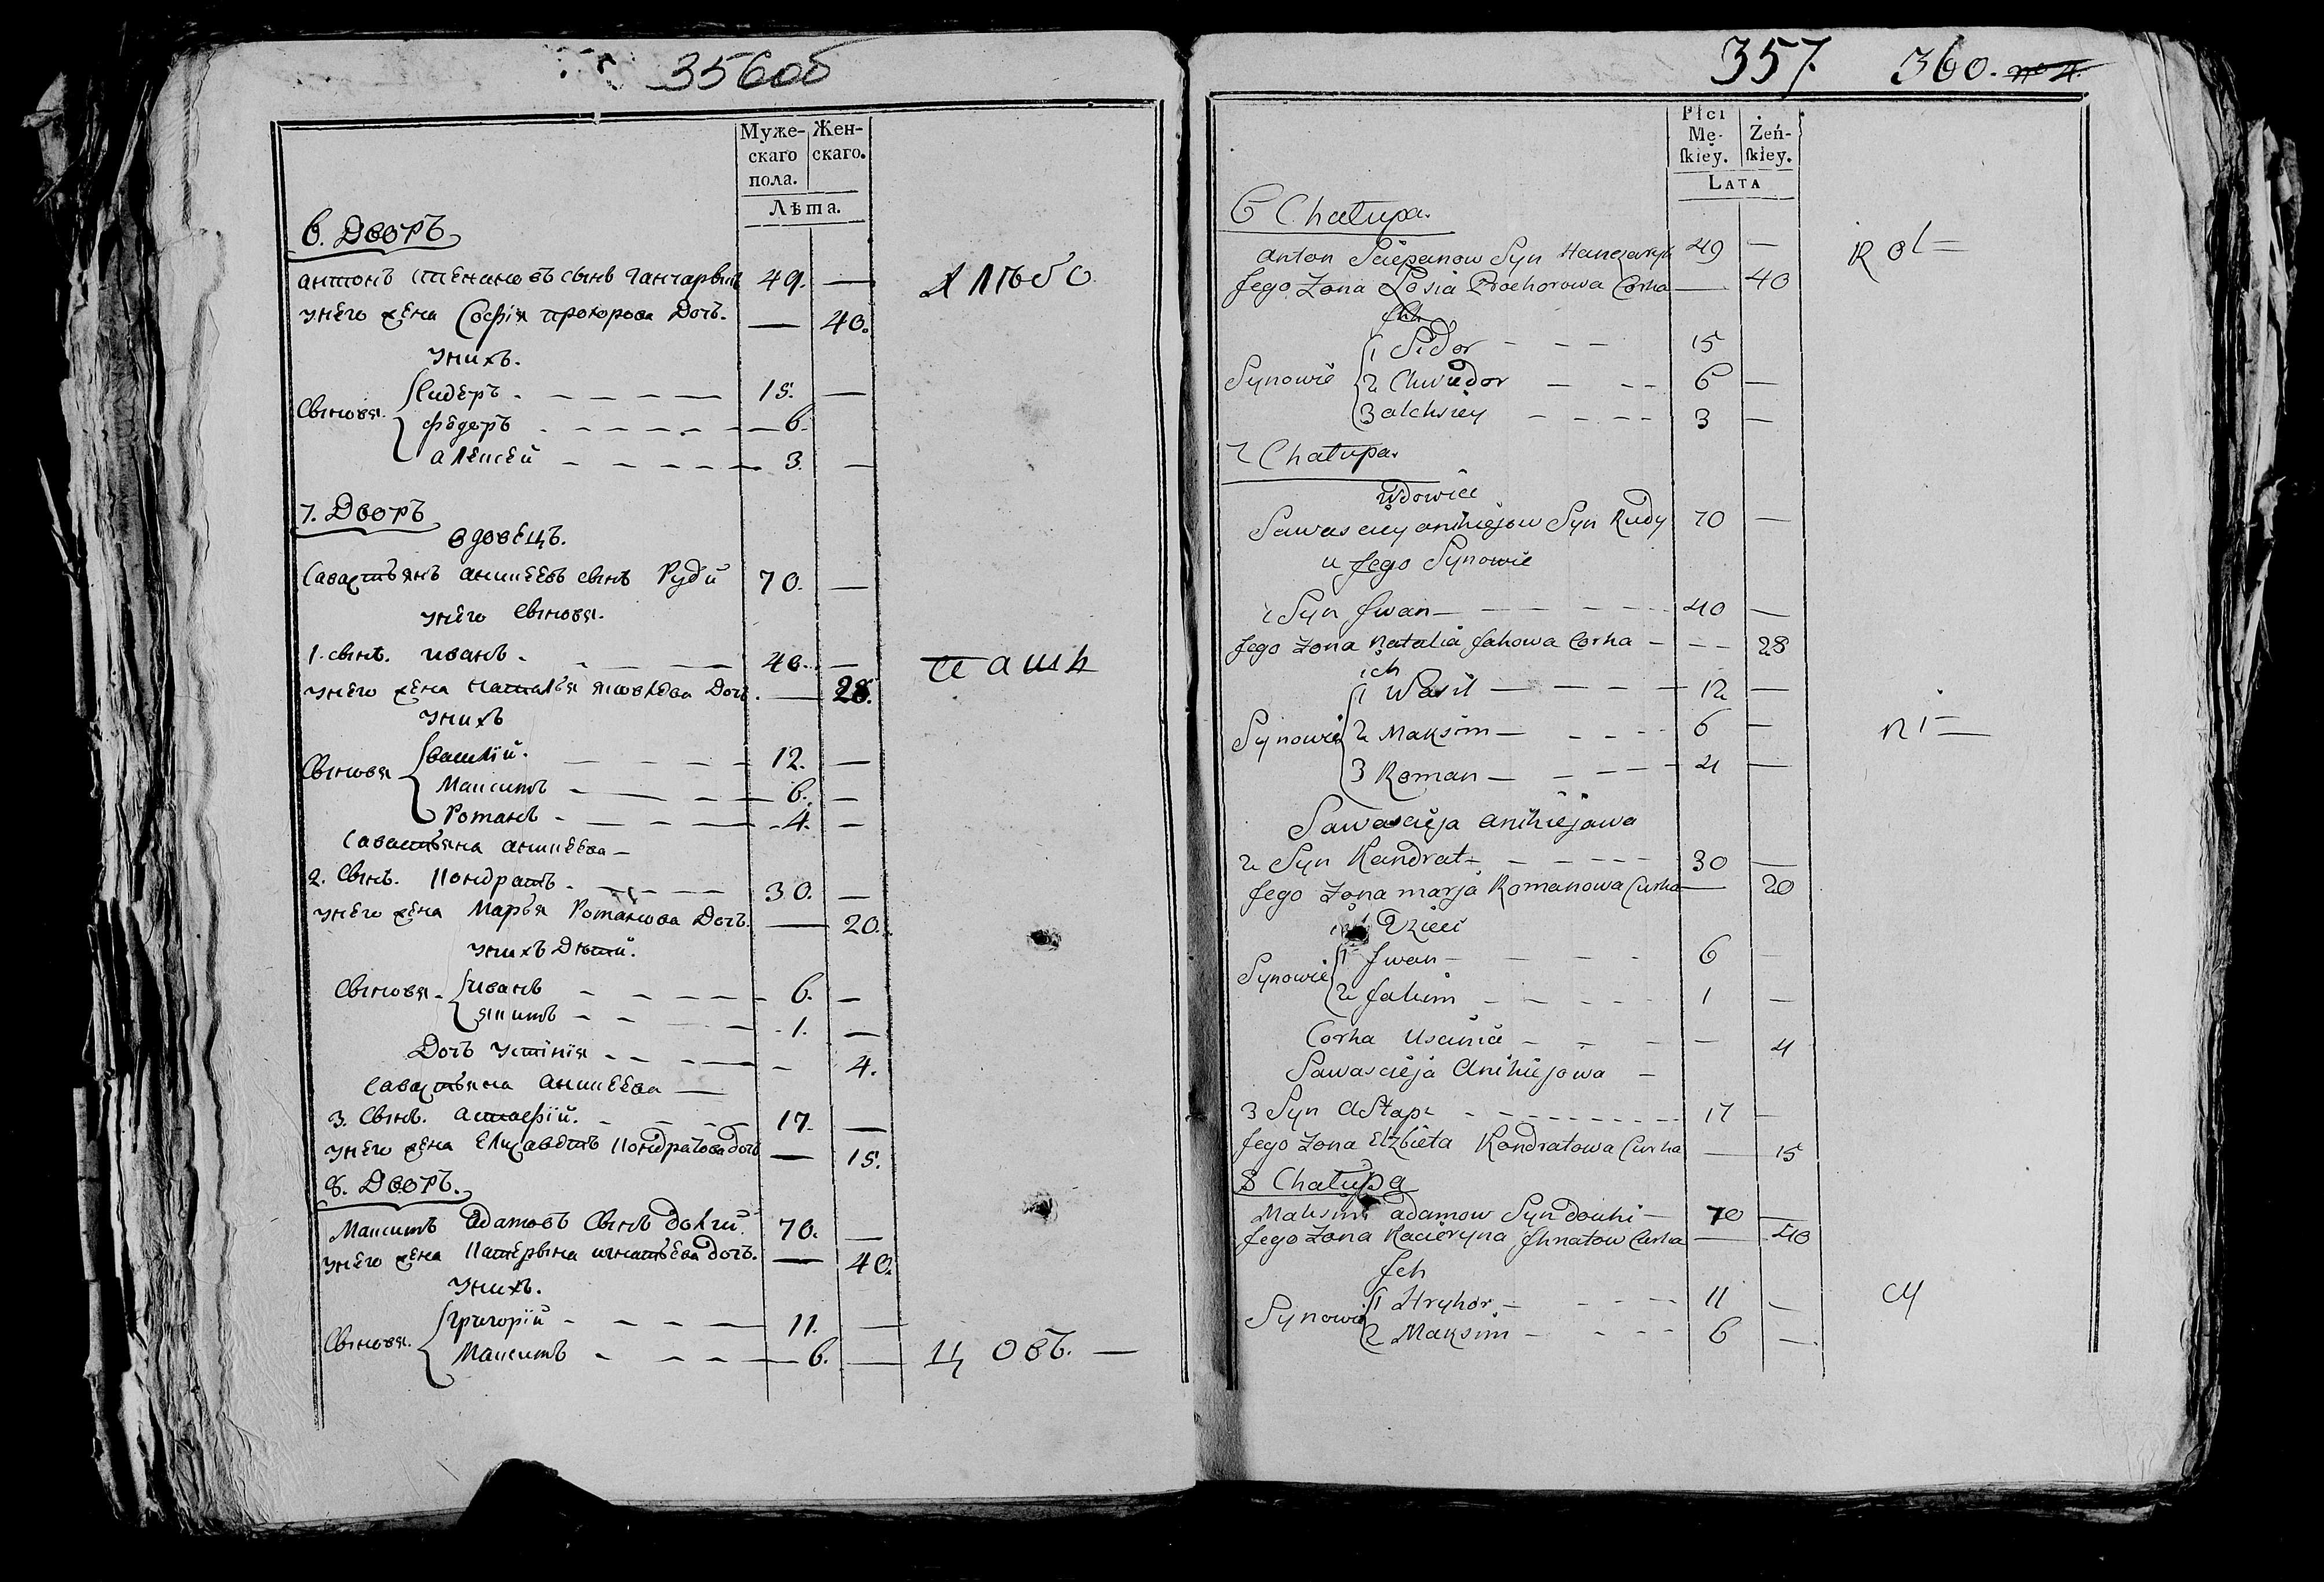 356об
Муже- Жен-
скаго скаго.
пола.
Лѣта.
6. Дворъ
антонъ степановъ сынъ Ганчарвий 49. —
унего жена Софія прохорова Дочь. — 40.
унихъ.
Сидеръ - 15. —
Сыновя.
федеръ - 6.
алексей - 3. —
7. Дворъ
вдовецъ.
Савастьянъ аникеевъ сынъ Рудй 70. —
унего Сыновя.
1. сынъ. иванъ - 40. —
унего жена наталья яковлева Доч. — 28.
унихъ
василій. 12. —
Сыновя
Максимъ 6. —
Романъ - 4. —
Савастьяна аникеева —
2. Сынъ. Кондратъ - 30. —
унего жена Марья Романова Дочь. — 20.
унихъ Дѣтй.
Сыновя - иванъ - 6. —
якимъ - 1. —
Дочь устінія - 4.
Савастьяна аникеева —
3. Сынъ. астафій. 17. —
унего жена Елисаветъ Кондратова дочь — 15.
8. Дворъ.
Максимъ Адамовъ Сынъ долгий 70. —
унего жена Катерына игнатьева дочь. — 40.
Унихъ.
Григорій - 11. —
Сыновя.
Максимъ - 6. —
Алѣбо
ташк
цовъ. —
357. 360.
Płci
Mę- Żeń-
ſkiey. ſkiey.
LATA
6 Chałupa.
Anton Sciepanow Syn Hanczaryk 49 —
Jego Zona Zosia Prochorowa Corka — 40
Jch
1 Sidor - 15
Synowie 2 Chwiedor - 6 —
3 aleksiey - 3 —
7 Chałupa.
Wdowiec
Sawasciey anikiejow Syn Rudy 70 —
u Jego Synowie
1 Syn Jwan — 40 —
Jego Zona Natalia Jakowa Corka — 28
ich
1 Wasil — 12 —
Synowie 2 Maksim — 6 —
3 Roman — 4 —
Sawascieja anikiejowa
2 Syn Kandrat - 30 —
Jego Zona marja Romanowa Curka — 20
Dzieci
1 Jwan — 6 —
Synowie
2 Jakim - 1 —
Corka Uscinia - 4
Sawascieja Anikiejowa -
3 Syn Astap - 17 —
Jego Zona Elzbieta Kondratowa Curka — 15
8 Chałupa
Maksim adamow Syn douhi — 70 —
Jego Zona Kacieryna Jhnatow Curka — 40
Jch
1 Hryhor - 11 —
Synowie
2 Maksim - 6 —
Rol—
ni—
cy